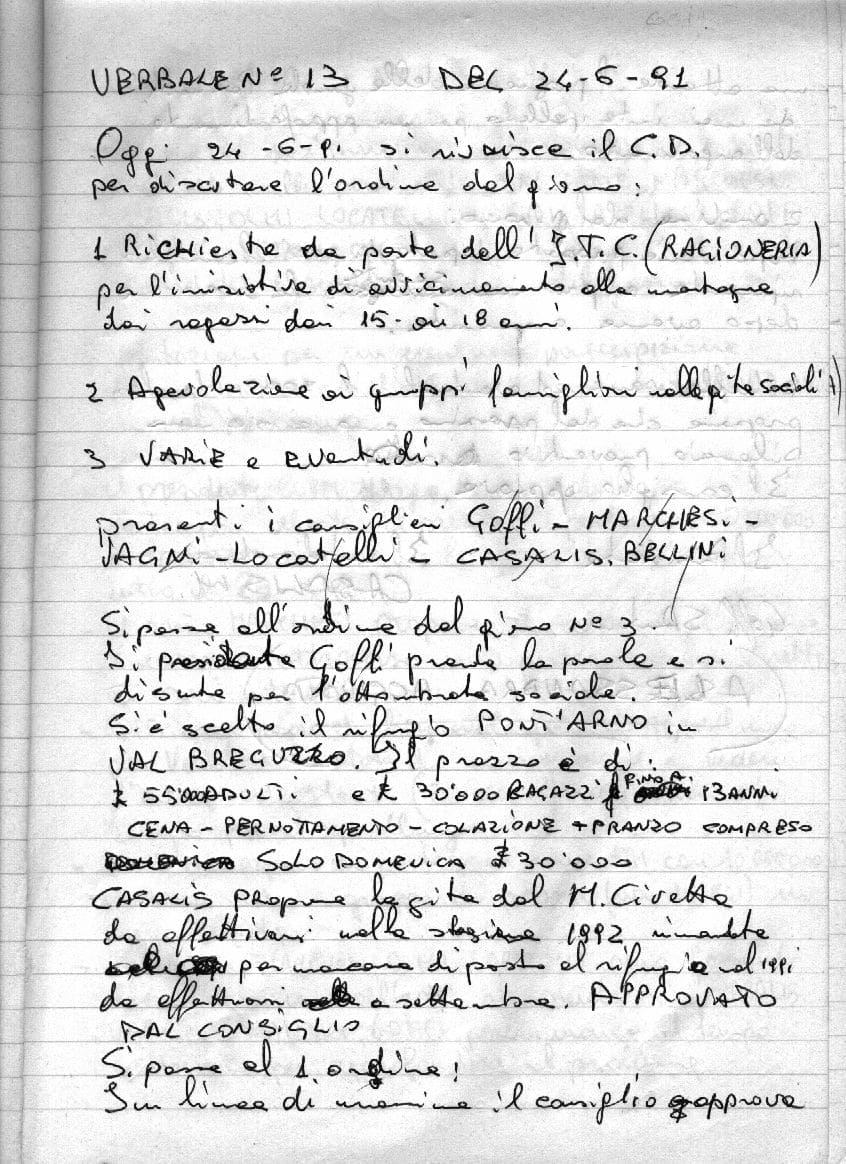 VERBALE Nº 13 DEL 24-6-91
Oggi 24-6-91 si riunisce il C.D.
per discutere l'ordine del giorno:
1 Richieste da parte dell' I.T.C. (RAGIONERIA)
per l'iniziativa di avvicinamento alla montagna
dai ragazzi dai 15- ai 18 anni.
2 Agevolazione ai gruppi famigliari nelle gite sociali
3 VARIE e eventuali.
presenti i consiglieri Goffi - MARCHESI -
VAGNI - Locatelli - CASALIS, BELLINI
Si passa all'ordine del giorno Nº 3.
Di presidente Goffi prende la parola e si
discute per l'ottobrata sociale.
Si è scelto il rifugio PONT'ARNO in
VAL BREGUZZO. Il prezzo è di:
£ 55'000 ADULTI e £ 30'000 RAGAZZI FINO A 13 ANNI
CENA - PERNOTTAMENTO - COLAZIONE + PRANZO COMPRESO
SOLO DOMENICA £ 30'000
CASALIS propone la gita del M. Civetta
da effettuarsi nella stagione 1992 rimandata
per mancanza di posto al rifugio nel 1991
da effettuarsi a settembre. APPROVATO
DAL CONSIGLIO
Si passa al 1. ordine!
In linea di massima il consiglio approva